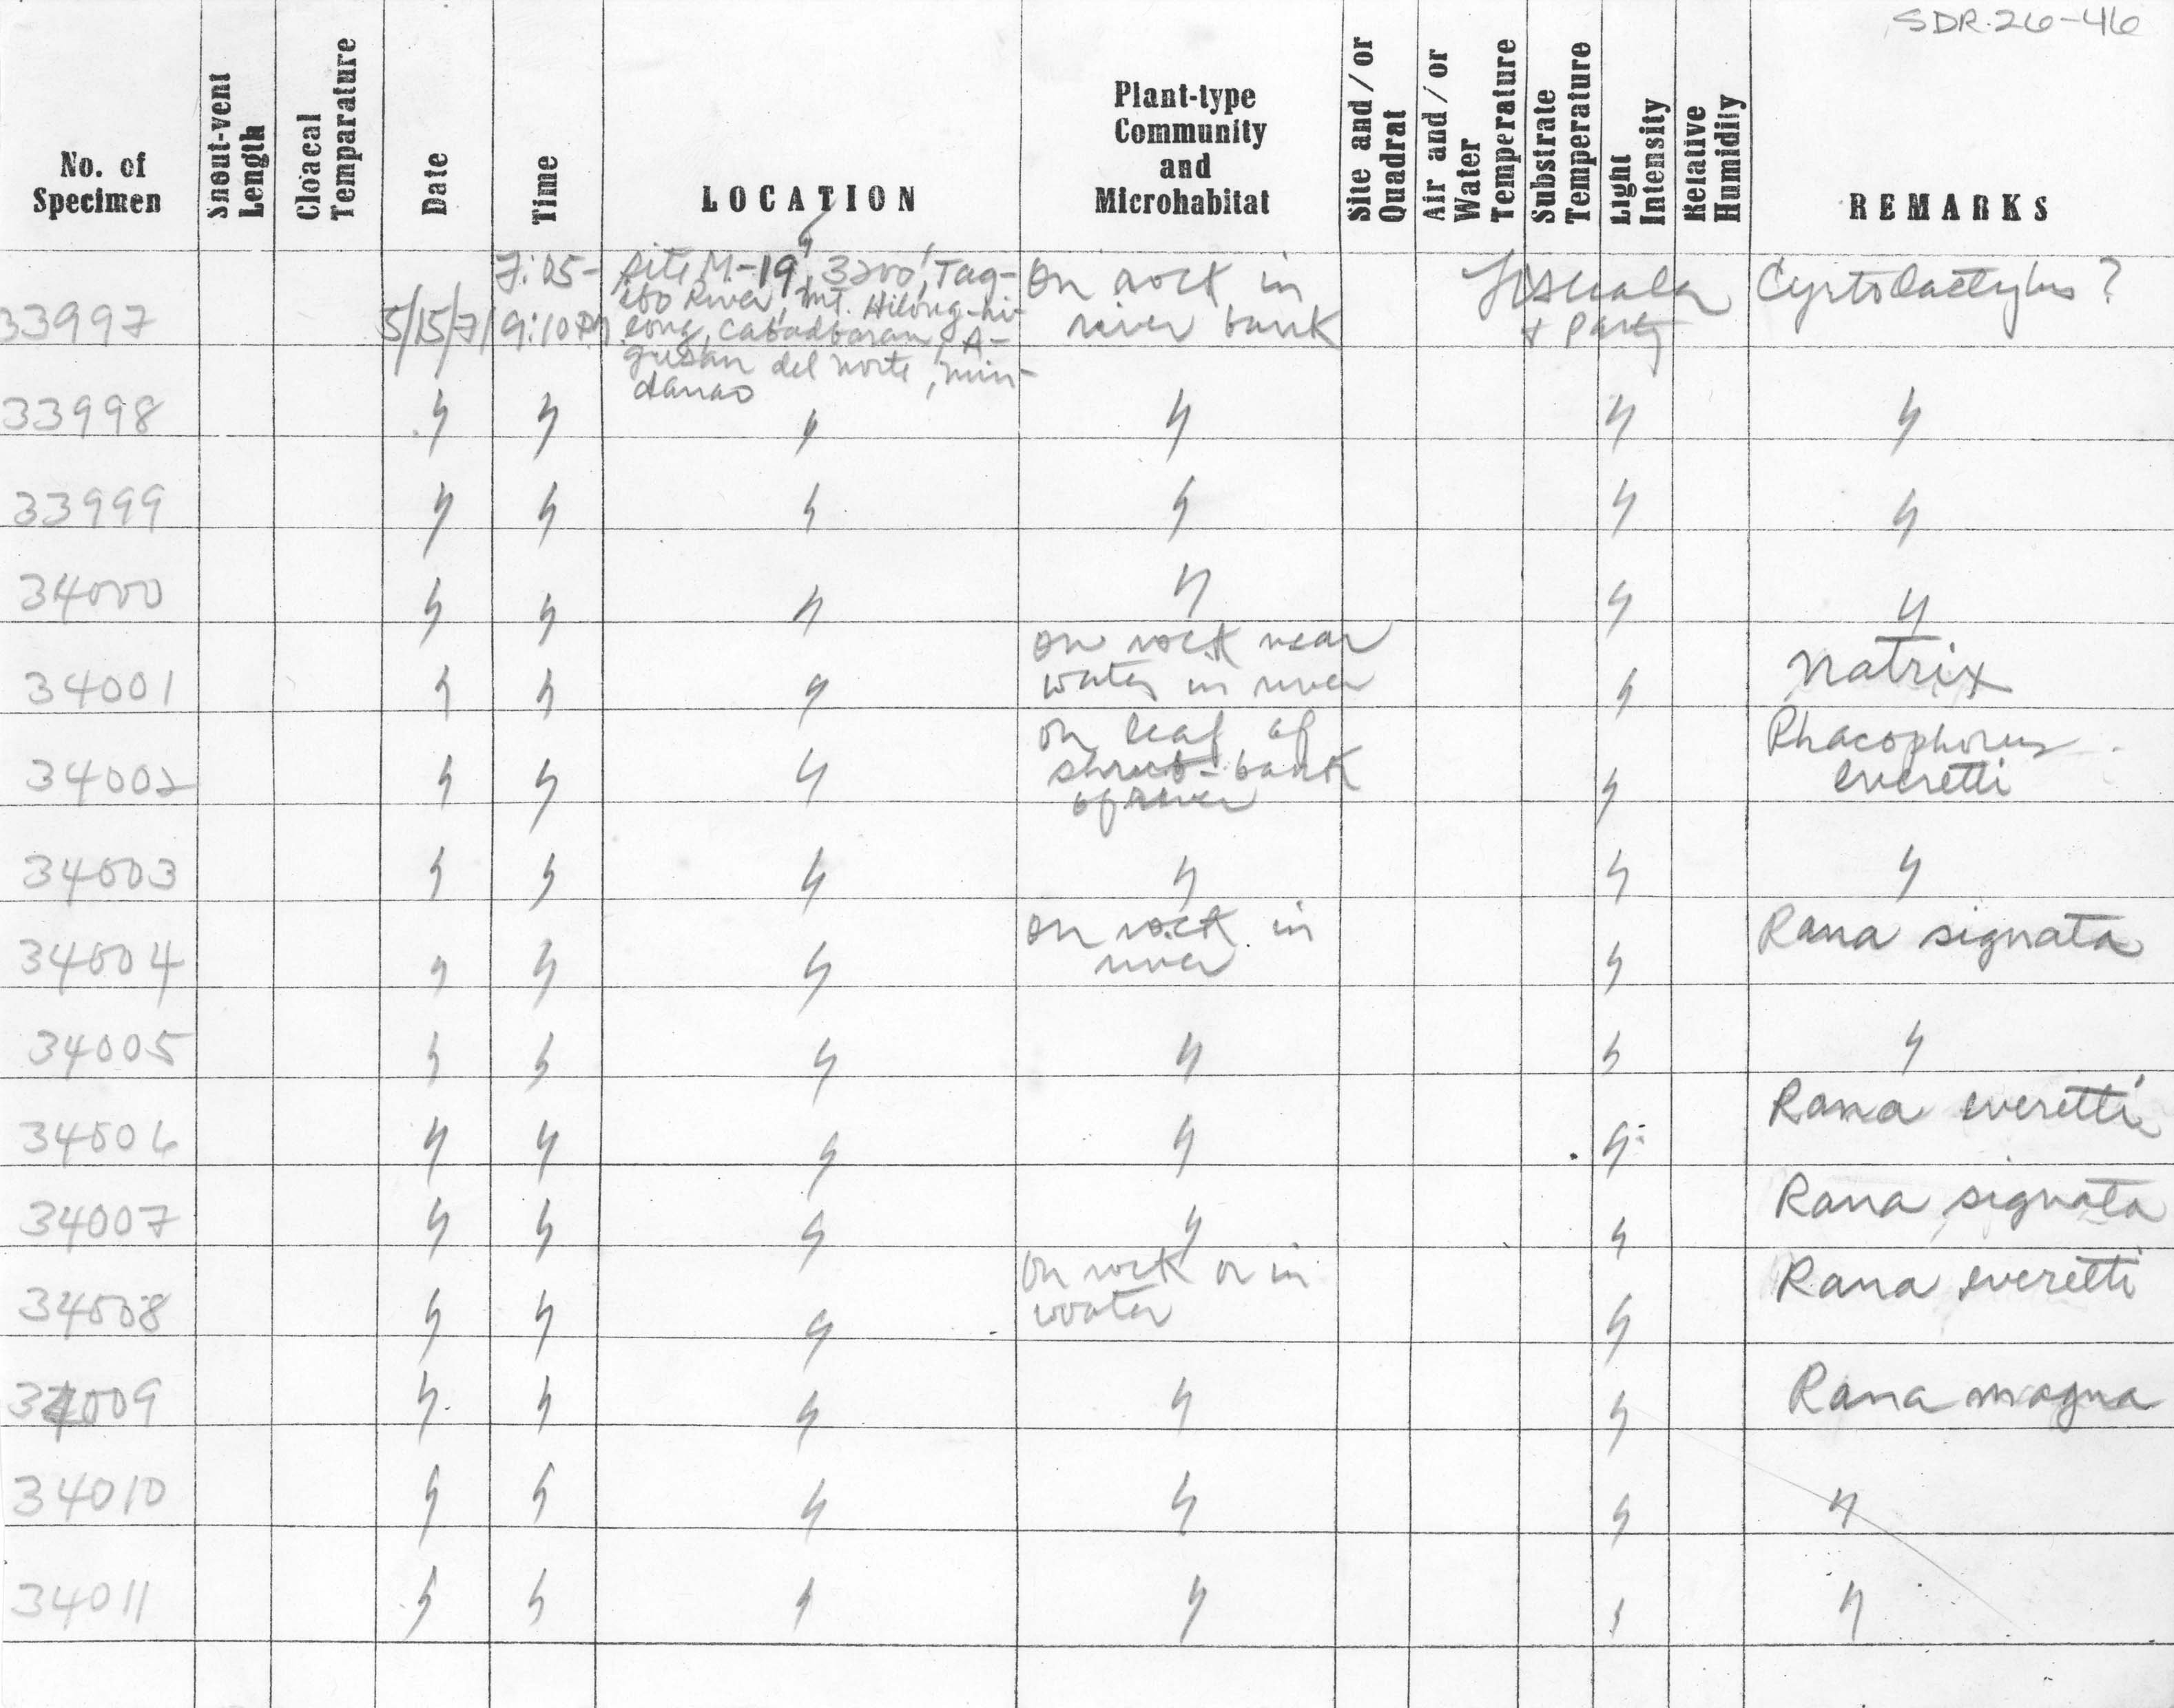 SDR. 26-46
No. of Specimen
Snout-vent Length
Cloacal Temparature
Date
Time
LOCATION
Plant-type Community and Microhabitat
Site and / or Quadrat
Air and / or Water Temperature
Substrate Temperature
Light Intensity
Relative Humidity
REMARKS
33997 5/15/71 7:05-9:10 PM Site M-19, 3200', Tag-ibo River, Mt. Hilong-hi-long, Cabadbaran, A-gusan del norte, Min-danao On rock in river bank & Party Cyrtodactylus ?
33998 " " " " " "
33999 " " " " " "
34000 " " " " " "
34001 " " " on rock near water in river " Natrix
34002 " " " on leaf of shrub-bank of river " Rhacophorus everetti
34003 " " " " " "
34004 " " " on rock in river " Rana signata
34005 " " " " " "
34006 " " " " " Rana everetti
34007 " " " " " Rana signata
34008 " " " on rock or in water " Rana everetti
34009 " " " " " Rana magna
34010 " " " " " "
34011 " " " " " "